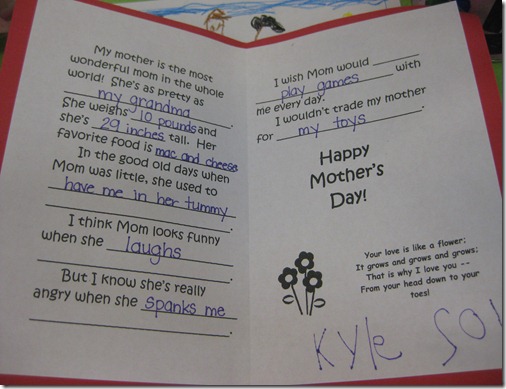 My mother is the most
wonderful mom in the whole
world! She's as pretty as
my grandma.
She weighs 10 pounds and
she's 29 inches tall. Her
favorite food is mac and cheese
In the good old days when
Mom was little, she used to
have me in her tummy
.
I think Mom looks funny
when she laughs
.
But I know she's really
angry when she spanks me
.
I wish Mom would
play games with
me every day.
I wouldn't trade my mother
for my toys.
Happy
Mother's
Day!
Your love is like a flower;
It grows and grows and grows;
That is why I love you --
From your head down to your
toes!
Kyle